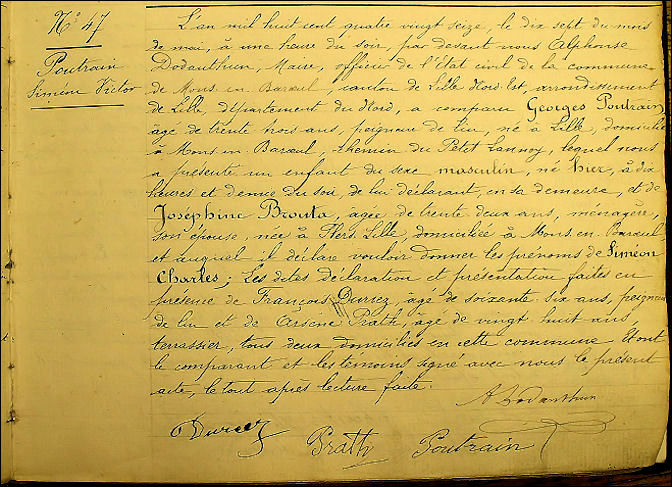 N° 47
Poutrain
Siméon Victor
L'an mil huit cent quatre vingt seize, le dix sept du mois
de mai, à une heure du soir, par devant nous Alphonse
Dodanthun, Maire, officier de l'Etat civil de la commune
de Mons en Barœul, canton de Lille Nord Est, arrondissement
de Lille, département du Nord, a comparu Georges Poutrain,
âgé de trente trois ans, peigneur de lin, né à Lille, domicilié
à Mons en Barœul, chemin du Petit Lannoy, lequel nous
a présenté un enfant du sexe masculin, né hier, à dix
heures et demie du soir, de lui déclarant, en sa demeure, et de
Joséphine Brouta, âgée de trente deux ans, ménagère,
son épouse, née à Flers Lille domiciliée à Mons en Barœul
et auquel il déclare vouloir donner les prénoms de Siméon
Charles; Les dites déclaration et présentation faites en
présence de François Duriez, âgé de soixante six ans, peigneur
de lin et de Arsène Prath, âgé de vingt huit ans,
terrassier, tous deux domiciliés en cette commune Et ont
le comparant et les témoins signé avec nous le présent
acte, le tout après lecture faite.
A Dodanthun
Duriez
Prath
Poutrain